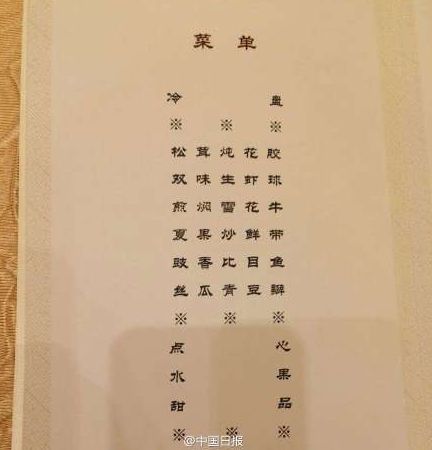 菜 单
冷 盘
※ ※ ※
松 茸 炖 花 胶
双 味 生 虾 球
煎 焖 雪 花 牛
夏 果 炒 鲜 带
豉 香 比 目 鱼
丝 瓜 青 豆 瓣
※ ※ ※
点 心
水 果
甜 品
※ ※
@中国日报